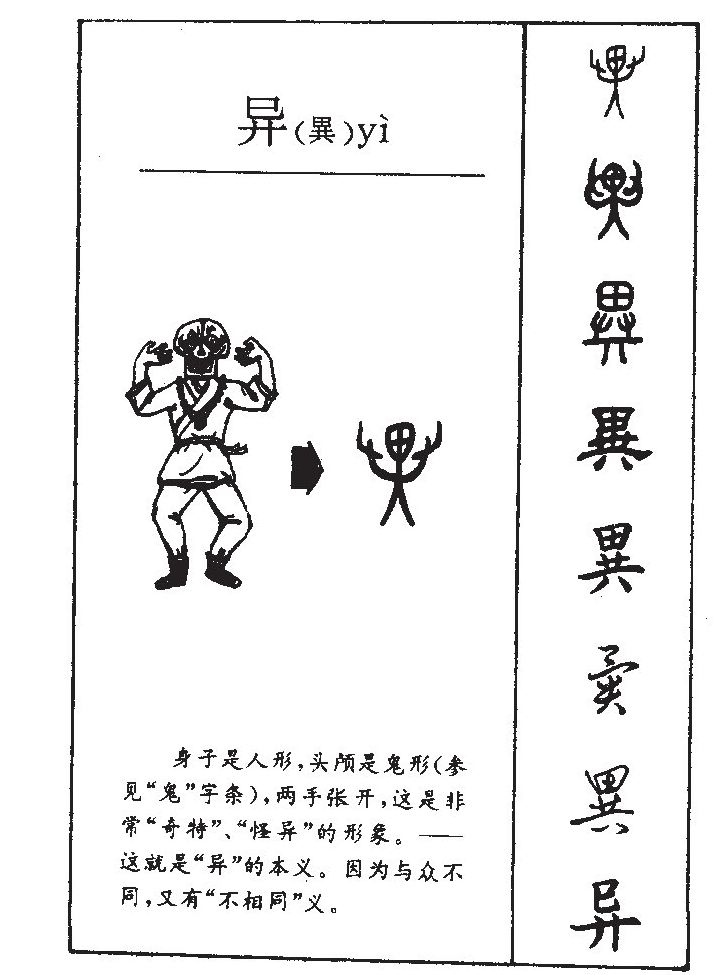 异(異)yì
身子是人形,头颅是鬼形(参
见“鬼”字条),两手张开,这是非
常“奇特”、“怪异”的形象。——
这就是“异”的本义。因为与众不
同,又有“不相同”义。
異
異
異
異
異
異
異
异